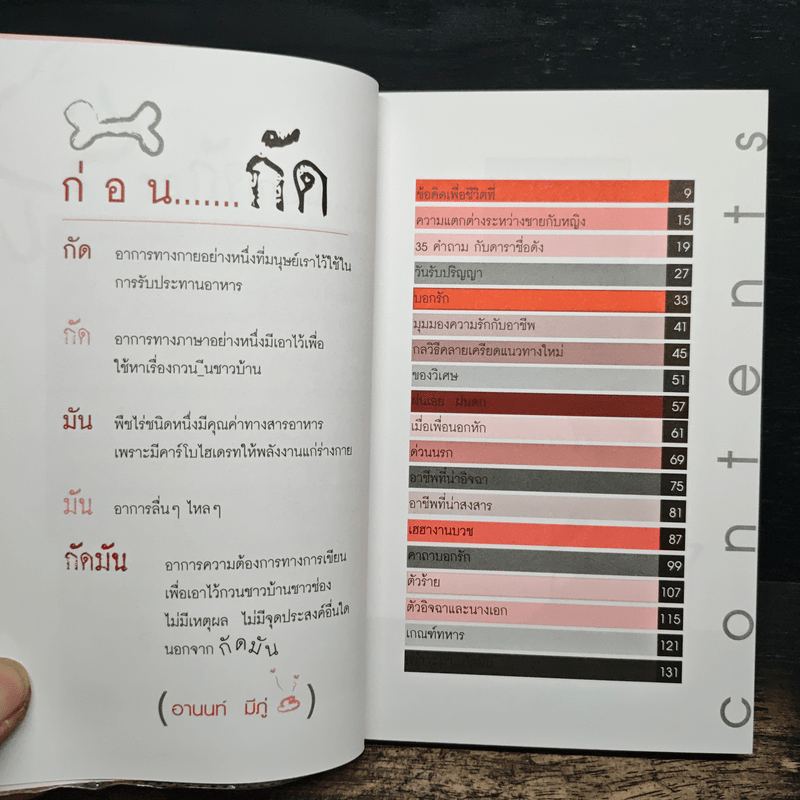 ก่อน.......กัด
กัด อาการทางกายอย่างหนึ่งที่มนุษย์เราไว้ใช้ใน
การรับประทานอาหาร
กัด อาการทางภาษาอย่างหนึ่งมีเอาไว้เพื่อ
ใช้หาเรื่องกวน_ีนชาวบ้าน
มัน พืชไร่ชนิดหนึ่งมีคุณค่าทางสารอาหาร
เพราะมีคาร์โบไฮเดรทให้พลังงานแก่ร่างกาย
มัน อาการลื่นๆ ไหลๆ
กัดมัน อาการความต้องการทางการเขียน
เพื่อเอาไว้กวนชาวบ้านชาวช่อง
ไม่มีเหตุผล ไม่มีจุดประสงค์อื่นใด
นอกจาก กัดมัน
(อานนท์ มีภู่)
contents
ข้อคิดเพื่อชีวิตที่ 9
ความแตกต่างระหว่างชายกับหญิง 15
35 คำถาม กับดาราชื่อดัง 19
วันรับปริญญา 27
บอกรัก 33
มุมมองความรักกับอาชีพ 41
กลวิธีคลายเครียดแนวทางใหม่ 45
ของวิเศษ 51
ฝนเอย ฝนตก 57
เมื่อเพื่อนอกหัก 61
ด่วนนรก 69
อาชีพที่น่าอิจฉา 75
อาชีพที่น่าสงสาร 81
เฮฮางานบวช 87
คาถาบอกรัก 99
ตัวร้าย 107
ตัวอิจฉาและนางเอก 115
เกณฑ์ทหาร 121
131